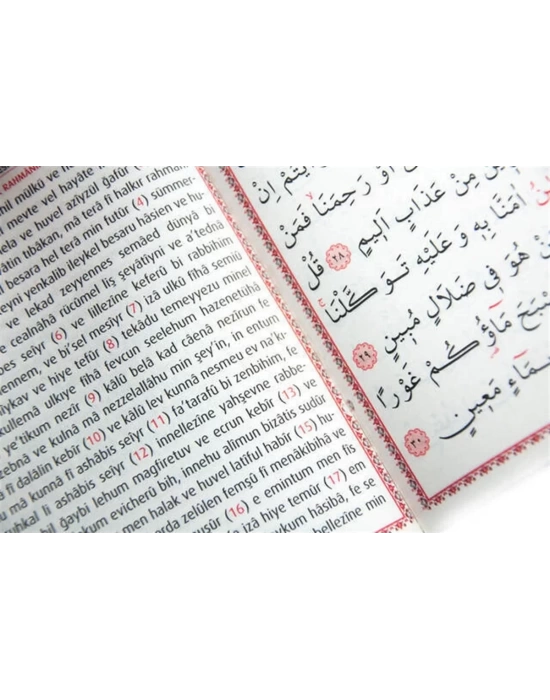 RAHMAN
mil mülkü ve
meyte vel hayate
ela ve huvel azîyzul gafûr
vâtin tıbâkan, mâ terâ fî halkır rahmân
besara hel terâ min futûr (4) sümmer-
eyni yenkalib ileykel besaru hâsien ve hu-
ve lekad zeyyennes semâed dünyâ bi
e cealnâhâ rücûmel liş şeyâtiyni ve a'tednâ
bes seîyr (6) ve lillezîne keferû bi rabbihim
ennem, ve bi'sel mesîyr (7) izâ ulkû fîhâ semiû
hîykav ve hiye tefûr (8) tekâdu temeyyezu minel
kullemâ ulkıye fîhâ fevcun seelehum hazenetühâ
ye'tikum nezîr (9) kâlû belâ kad câenâ nezîrun fe
zebnâ ve kulnâ mâ nezzelallâhu min şey'in, in entum
fî dalâlin kebîr (10) ve kâlû lev kunnâ nesmeu ev na'kı-
mâ kunnâ fî ashâbis seîyr (11) fa'terafû bi zenbihim, fe
uhkal li ashâbis seîyr (12) innellezîne yahşevne rabbe-
bil ğaybi lehum magfiretuv ve ecrun kebîr (13) ve
kum evicherû bih, innehu alîmun bizâtis sudûr
men halak ve huvel latîful habîr (15) hu-
arda zelûlen femşû fî menâkibihâ ve
nuşûr (16) e emintum men fis
izâ hiye temûr (17) em
aykum hâsibâ, fe se
bellezîne min
اَوْ رَحِمَنَا فَمَنْ
مِنْ عَذَابٍ اَلِيمٍ ٢٨ قُلْ
اٰمَنَّا بِهِ وَعَلَيْهِ تَوَكَّلْنَا
هُوَ فِى ضَلَالٍ مُبِينٍ ٢٩
مَاؤُكُمْ غَوْرًا
مَعِينٍ ٣٠